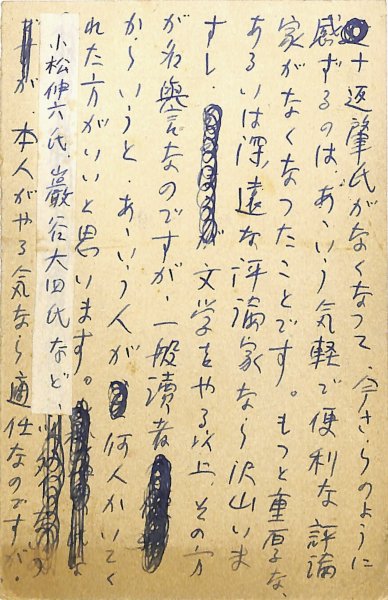 十返肇氏がなくなつて、今さらのように
感ずるのは、あゝいう気軽で便利な評論
家がなくなつたことです。もつと重厚な、
あるいは深遠な評論家なら沢山いま
すし、文学をやる以上、その方
が名誉なのですが、一般読者
からいうと、あゝいう人が何人かいてく
れた方がいいと思います。
小松伸六氏、巌谷大四氏など、
が、本人がやる気なら適任なのですが。